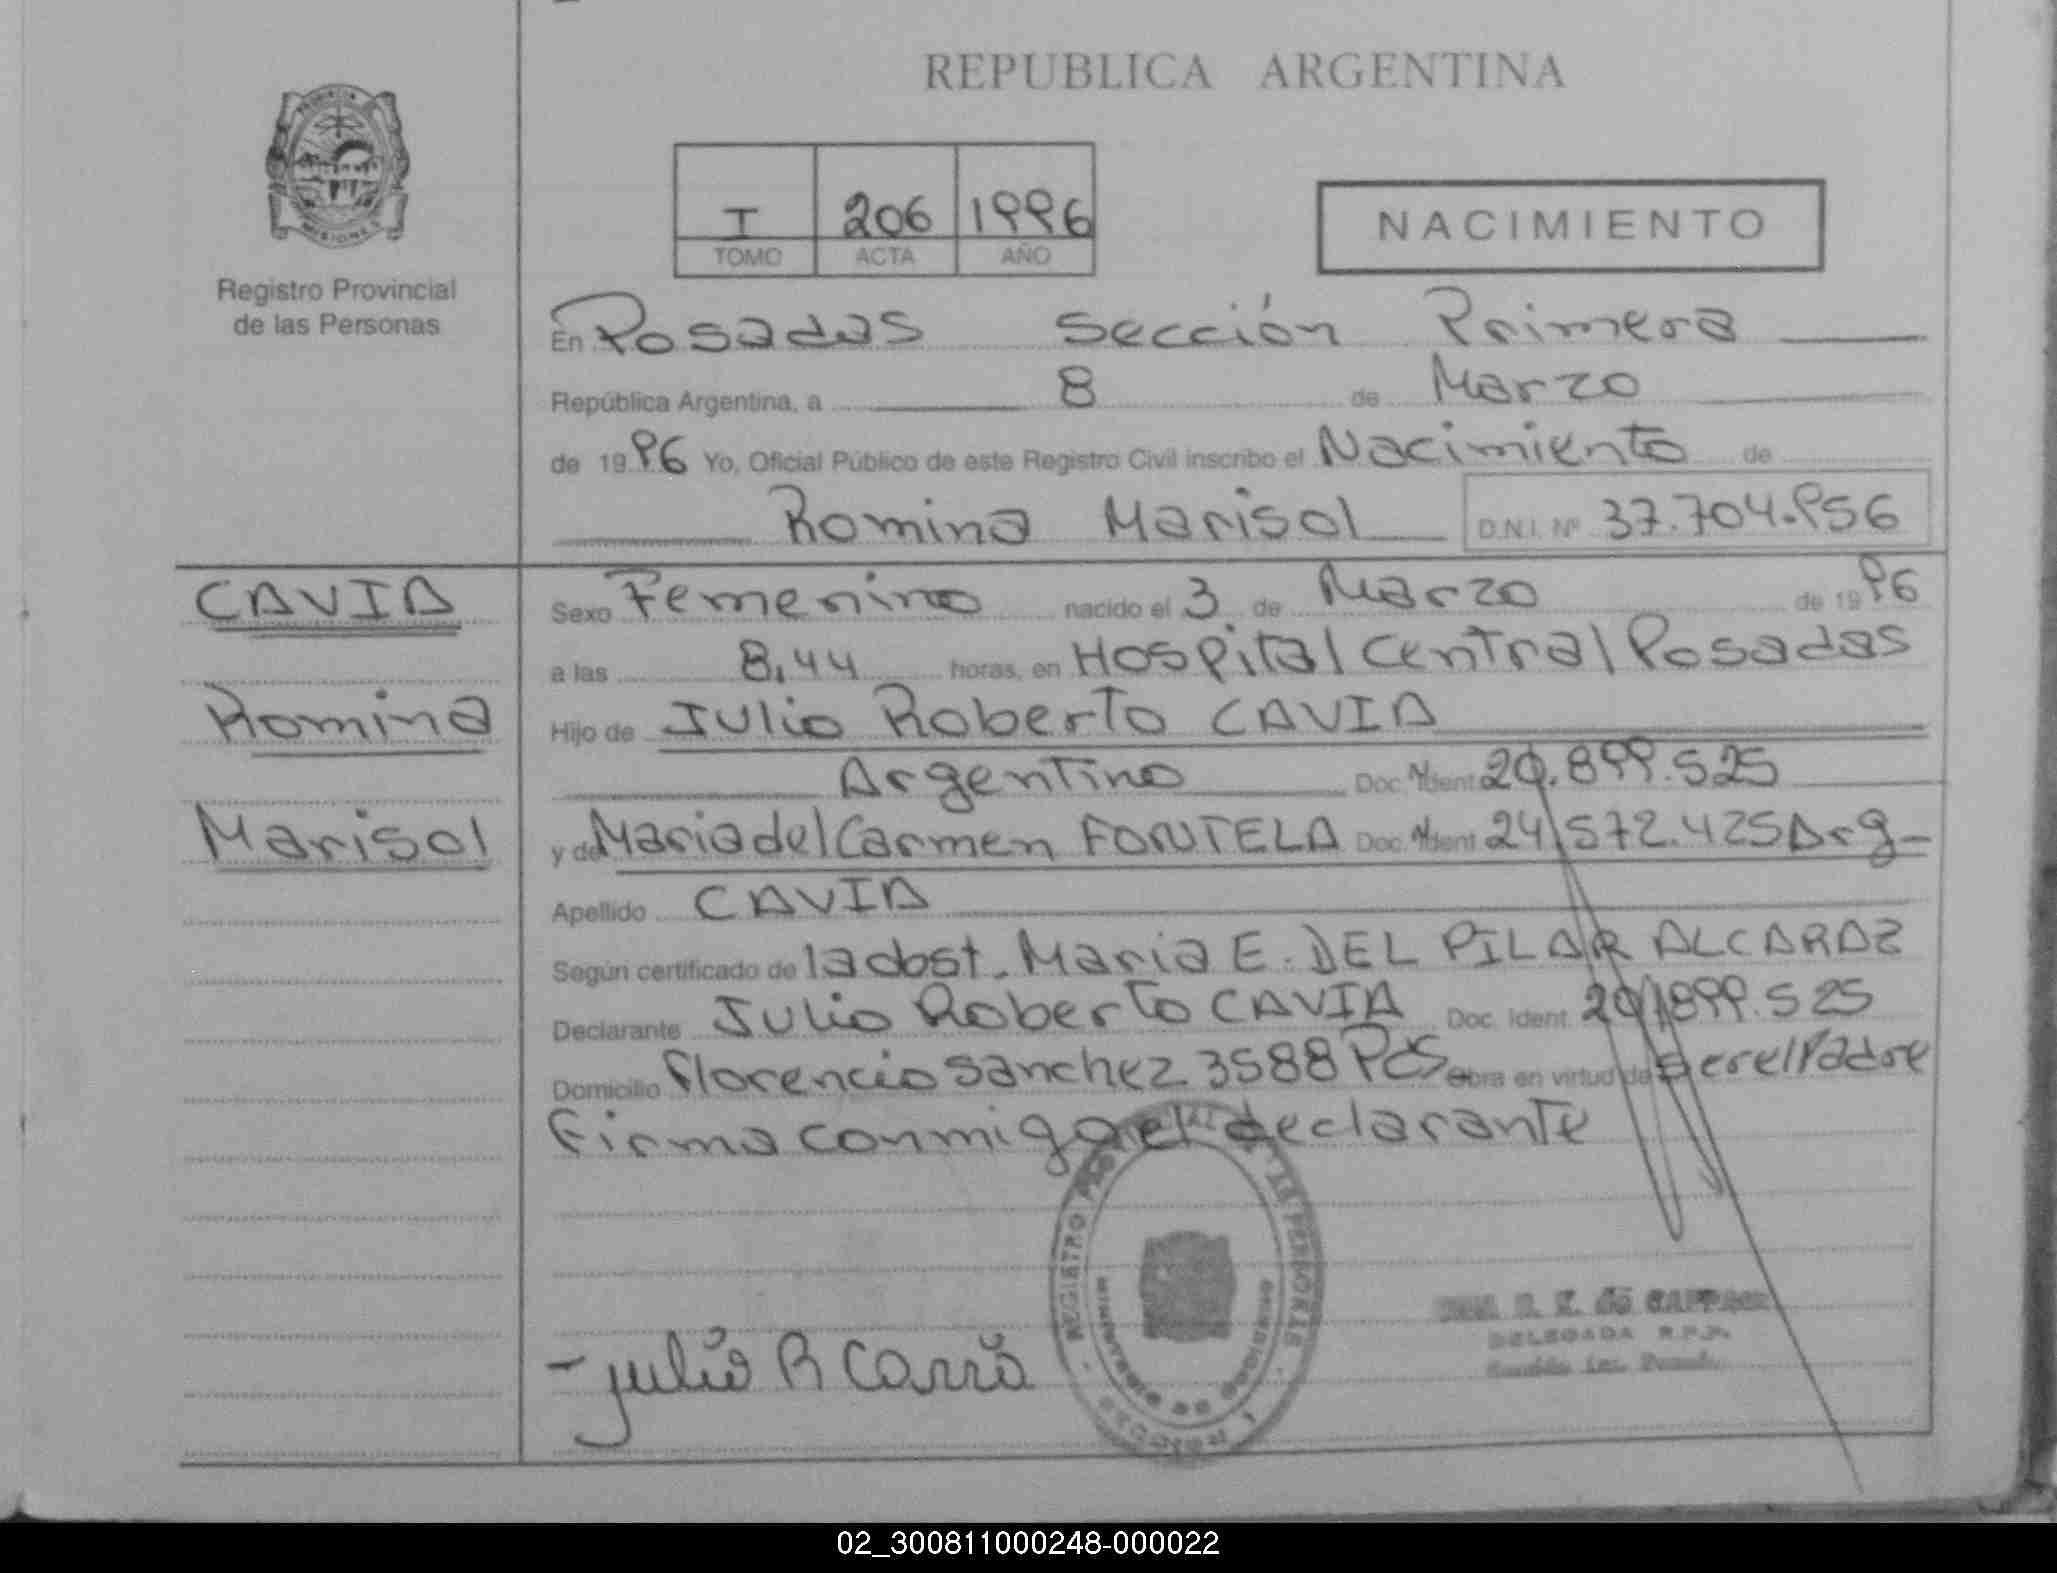 REPUBLICA ARGENTINA
PROVINCIA
MISIONES
Registro Provincial
de las Personas
I 206 1996
TOMO ACTA AÑO
NACIMIENTO
En Posadas Sección Primera
República Argentina, a 8 de Marzo
de 1996 Yo, Oficial Público de este Registro Civil inscribo el Nacimiento de
Romina Marisol D.N.I. Nº 37.704.956
CAVIA
Romina
Marisol
Sexo Femenino nacido el 3 de Marzo de 1996
a las 8,44 horas, en Hospital Central Posadas
Hijo de Julio Roberto CAVIA
Argentino Doc. Ident. 20.899.525
y de Maria del Carmen FONTELA Doc. Ident 24.572.425 Arg-
Apellido CAVIA
Según certificado de la obst. Maria E. DEL PILAR ALCARAZ
Declarante Julio Roberto CAVIA Doc. Ident. 20.899.525
Domicilio Florencio Sanchez 3588 Pdas. Obra en virtud de ser el Padre
Firma conmigo el declarante
REGISTRO DE LAS PERSONAS
MINISTERIO DE GOBIERNO
MISIONES
DELEGADA R.P.P.
02_300811000248-000022